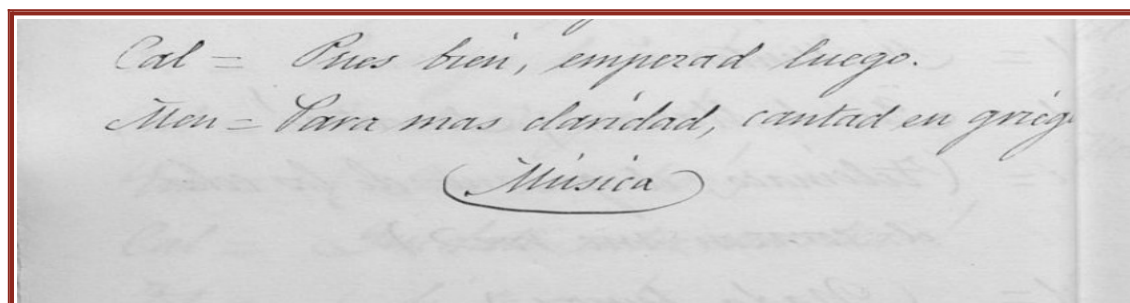 Cal = Pues bien, emperad luego.
Men = Para mas claridad, cantad en grieg
(Música)